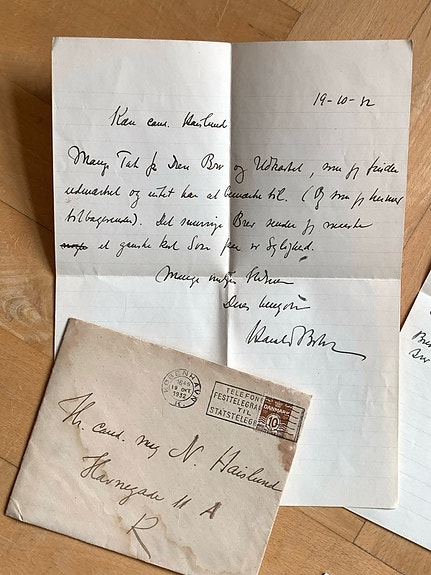 19-10-32
Kære cand. Haislund
Mange Tak for Deres Brev og Udkastet, som jeg finder
udmærket og intet har at bemærke til. (Og som jeg hermed
tilbagesender). Det Brev sender jeg
et ganske kort som
Mange venlige Hilsner
Deres hengivne
Harald Bohr
KØBENHAVN
19 OKT
1932
TELEFONER
FESTTELEGRAM
TIL
STATSTELEGR
DANMARK
10
Hr. cand. mag N. Haislund
Havnegade 11 A
K